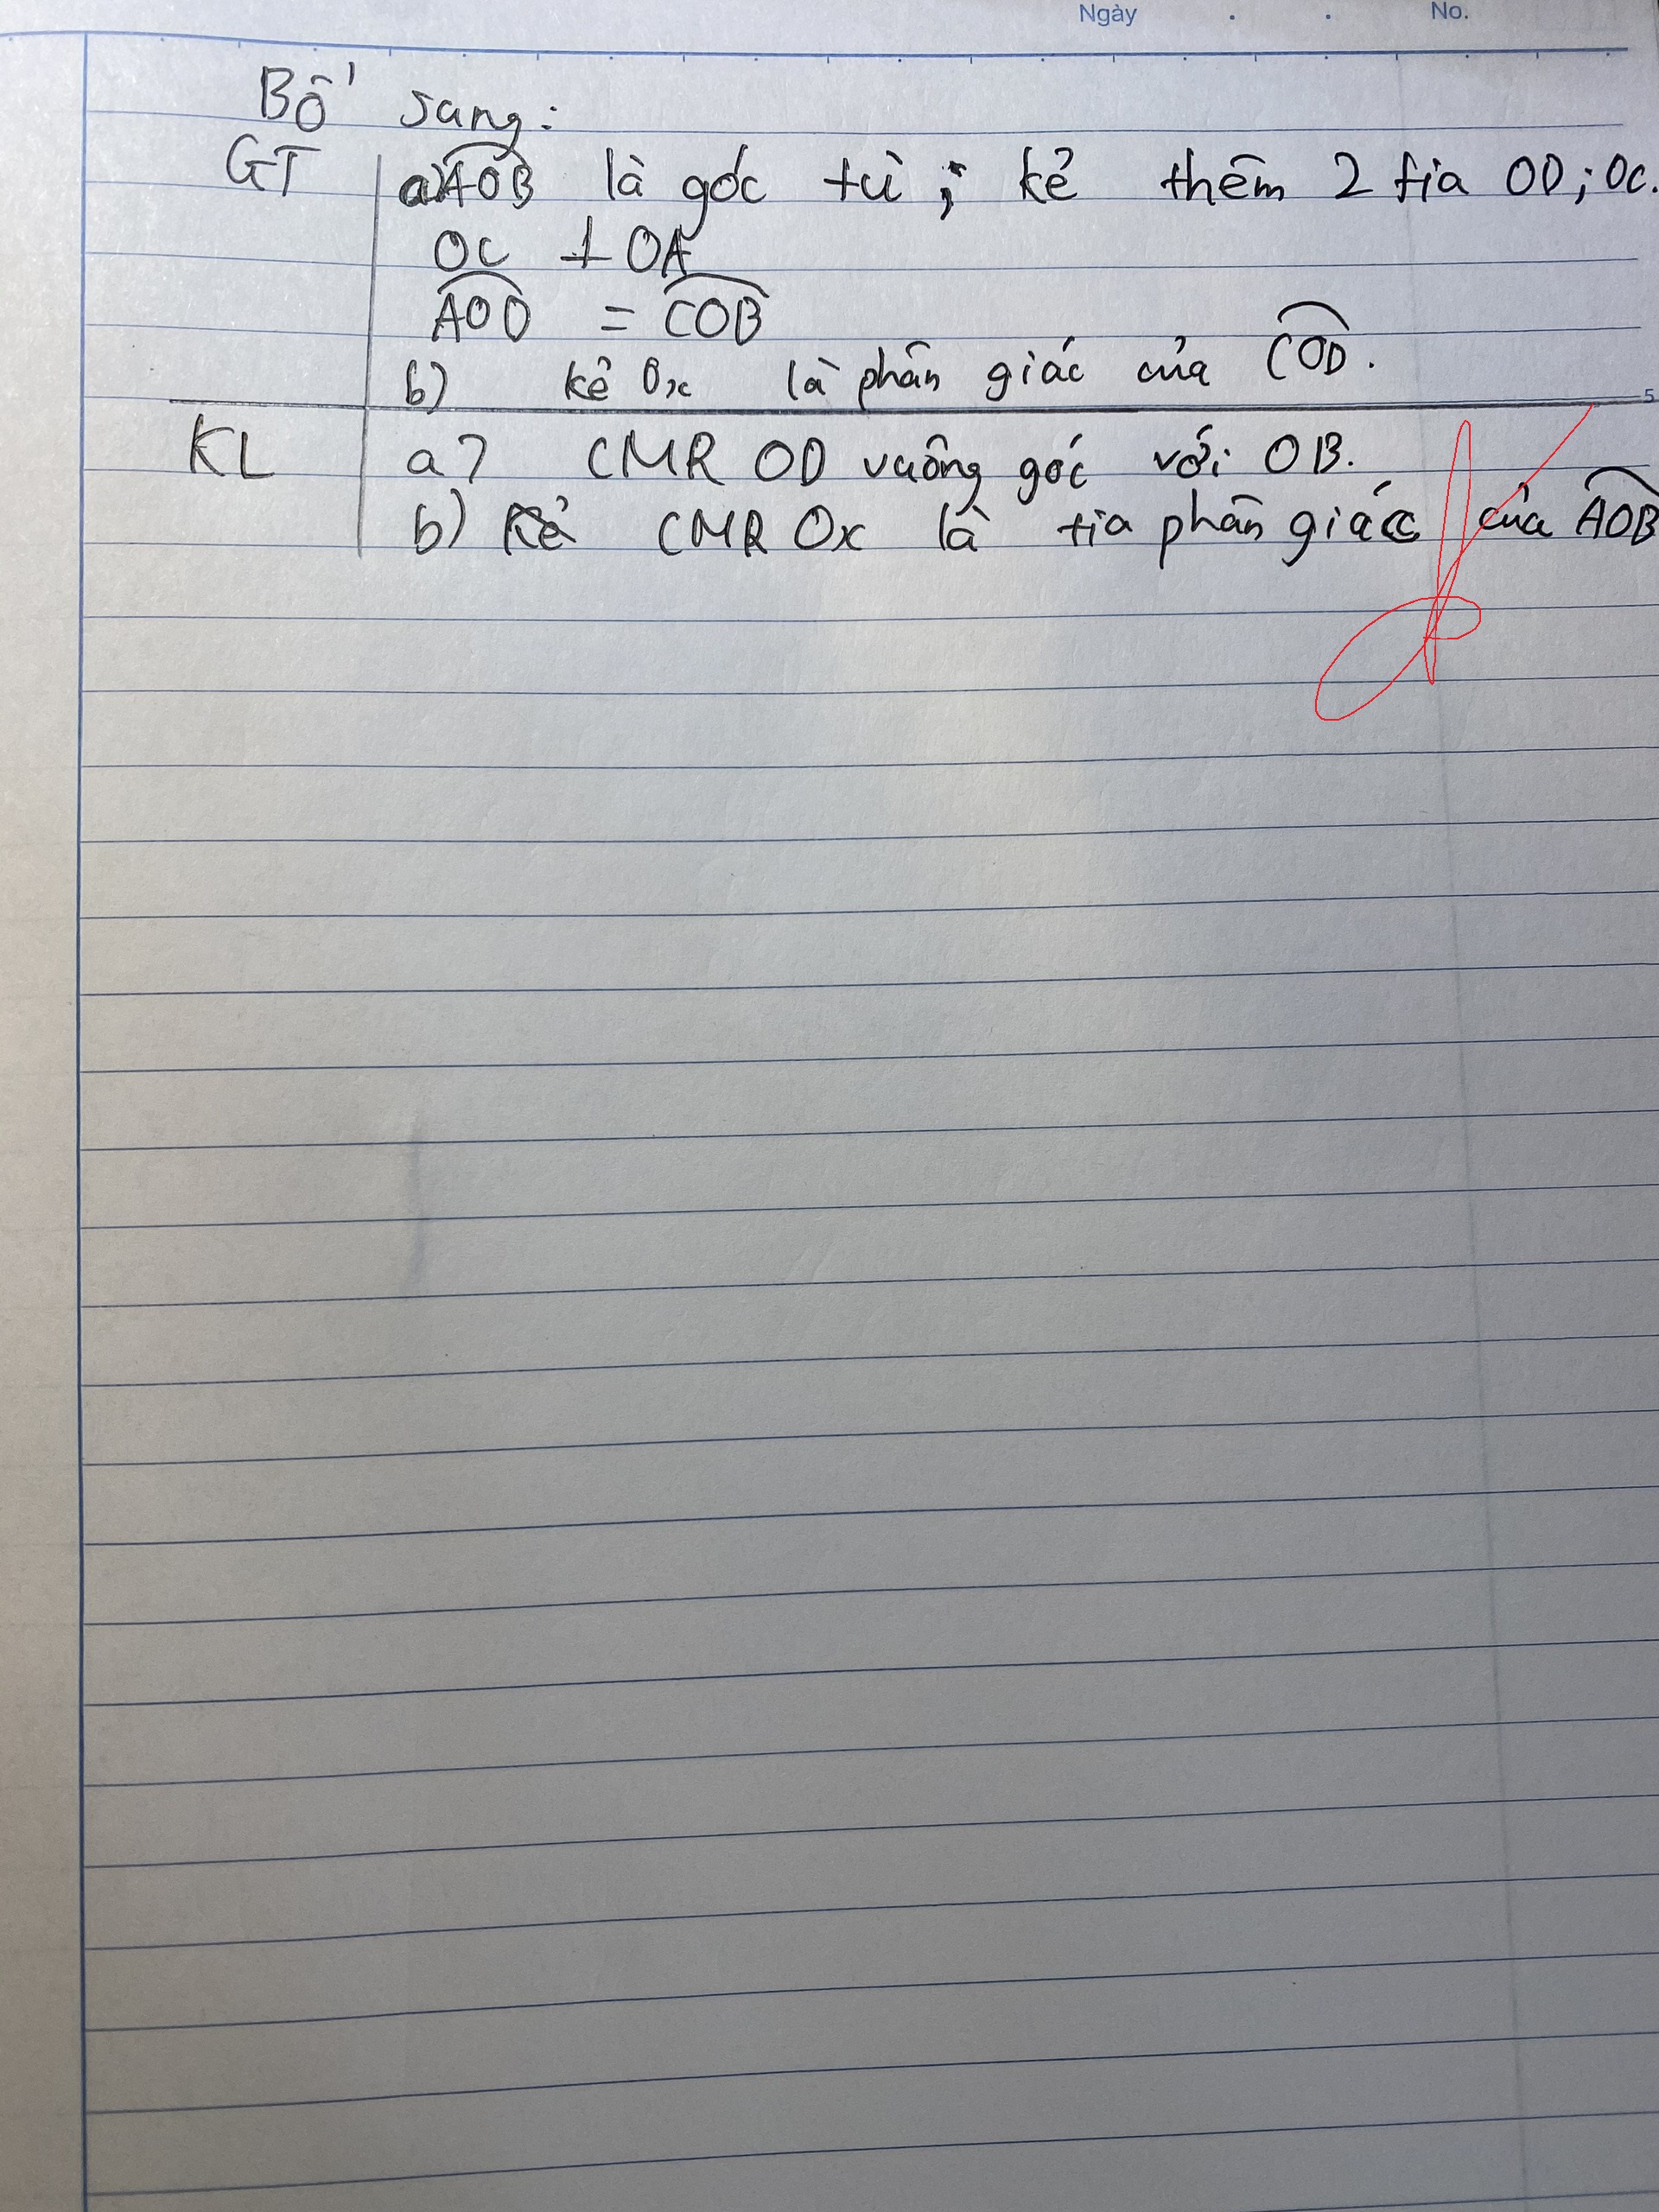 Ngày . . No.
Bổ sang:
GT a) AOB là góc tù ; kẻ thêm 2 tia OD; OC.
OC ⊥ OA
AOD = COB
b) kẻ Ox là phân giác của COD.
5
KL a) CMR OD vuông góc với OB.
b) Kẻ CMR Ox là tia phân giác của AOB